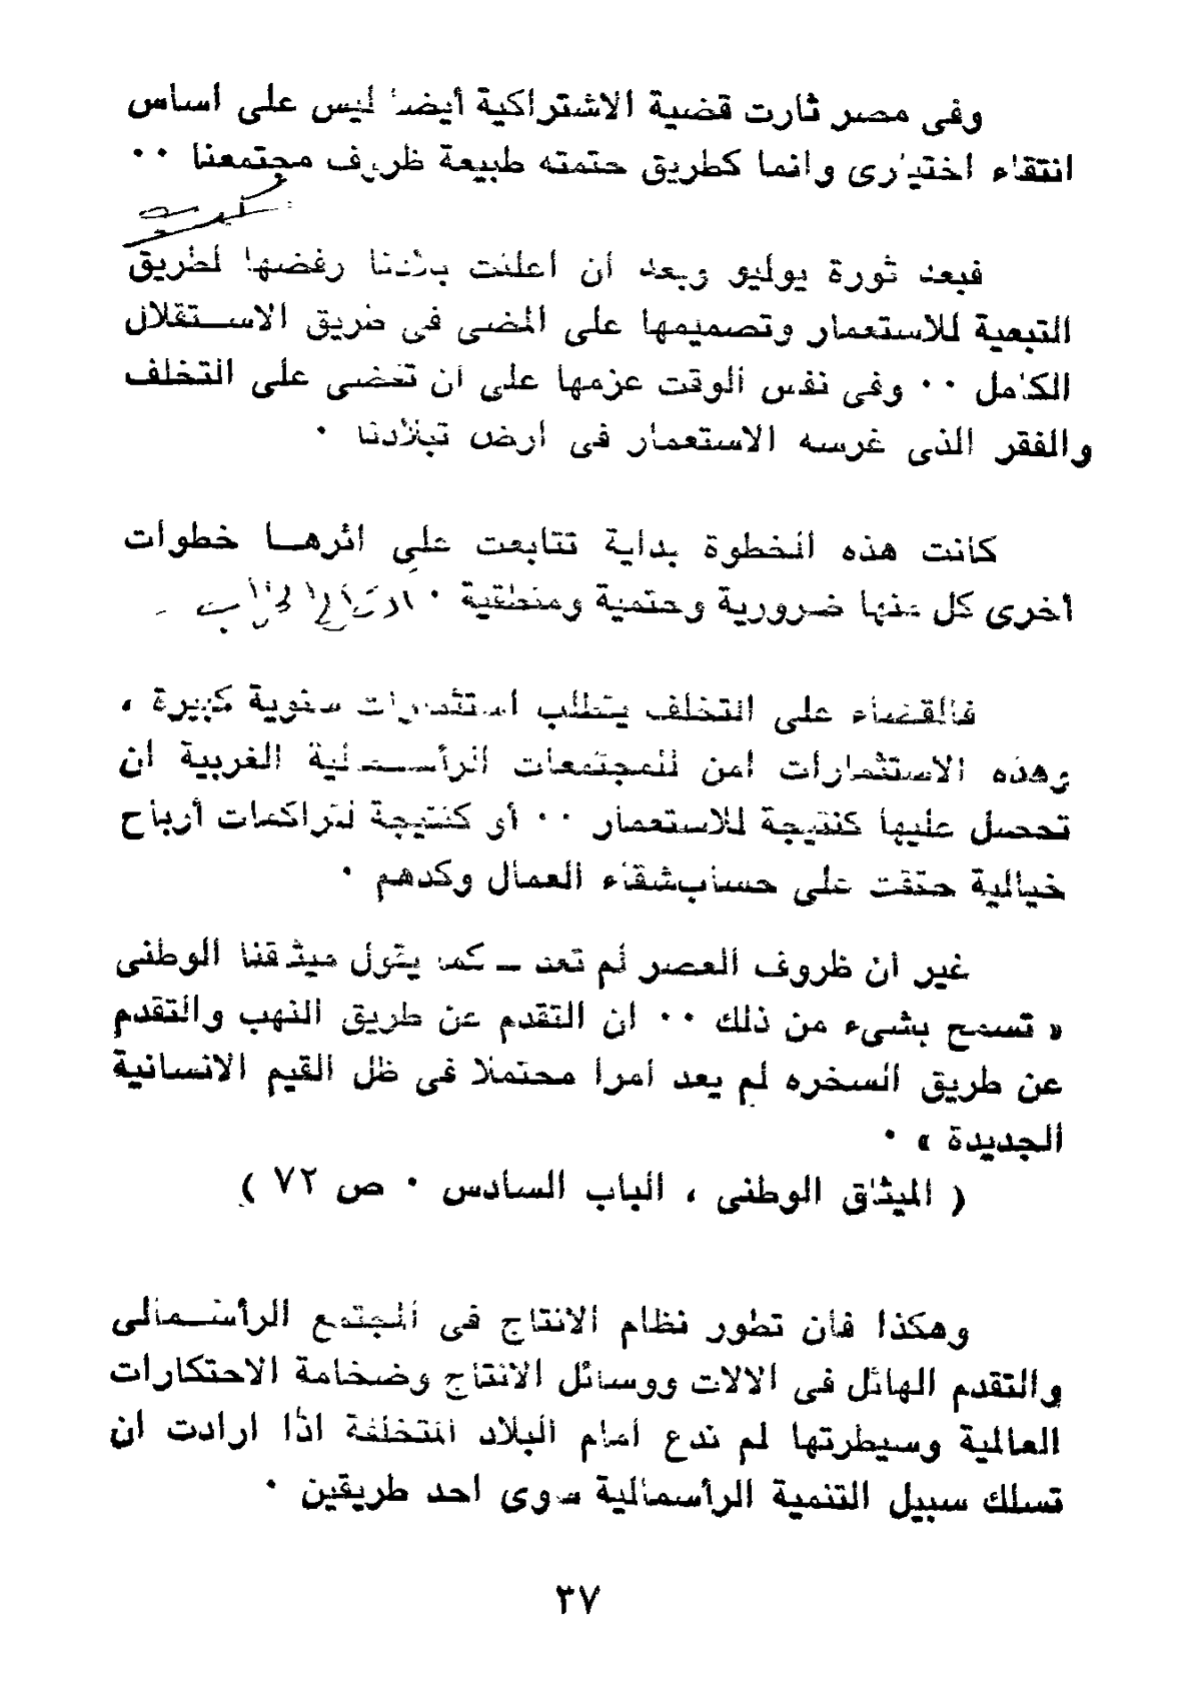 وفى مصر ثارت قضية الاشتراكية أيضا ليس على اساس
انتقاء اختيارى وانما كطريق حتمته طبيعة ظروف مجتمعنا ٠٠
فبعد ثورة يوليو وبعد ان اعلنت بلادنا رفضها لطريق
التبعية للاستعمار وتصميمها على المضى فى طريق الاستقلال
الكامل ٠٠ وفى نفس الوقت عزمها على ان تقضى على التخلف
والفقر الذى غرسه الاستعمار فى ارض تبلادنا ٠
كانت هذه الخطوة بداية تتابعت على اثرها خطوات
أخرى كل منها ضرورية وحتمية ومنطقية ٠
فالقضاء على التخلف يتطلب استثمارات سنوية كبيرة ،
وهذه الاستثمارات امن للمجتمعات الرأسمالية الغربية ان
تحصل عليها كنتيجة للاستعمار ٠٠ أو كنتيجة لتراكمات أرباح
خيالية حققت على حساب شقاء العمال وكدهم ٠
غير ان ظروف العصر لم تعد ـ كما يقول ميثاقنا الوطنى
« تسمح بشىء من ذلك ٠٠ ان التقدم عن طريق النهب والتقدم
عن طريق السخره لم يعد امرا محتملا فى ظل القيم الانسانية
الجديدة » ٠
( الميثاق الوطنى ، الباب السادس ٠ ص ٧٢ )
وهكذا فان تطور نظام الانتاج فى المجتمع الرأسمالى
والتقدم الهائل فى الالات ووسائل الانتاج وضخامة الاحتكارات
العالمية وسيطرتها لم تدع امام البلاد المتخلفة اذا ارادت ان
تسلك سبيل التنمية الرأسمالية سوى احد طريقين ٠
٣٧